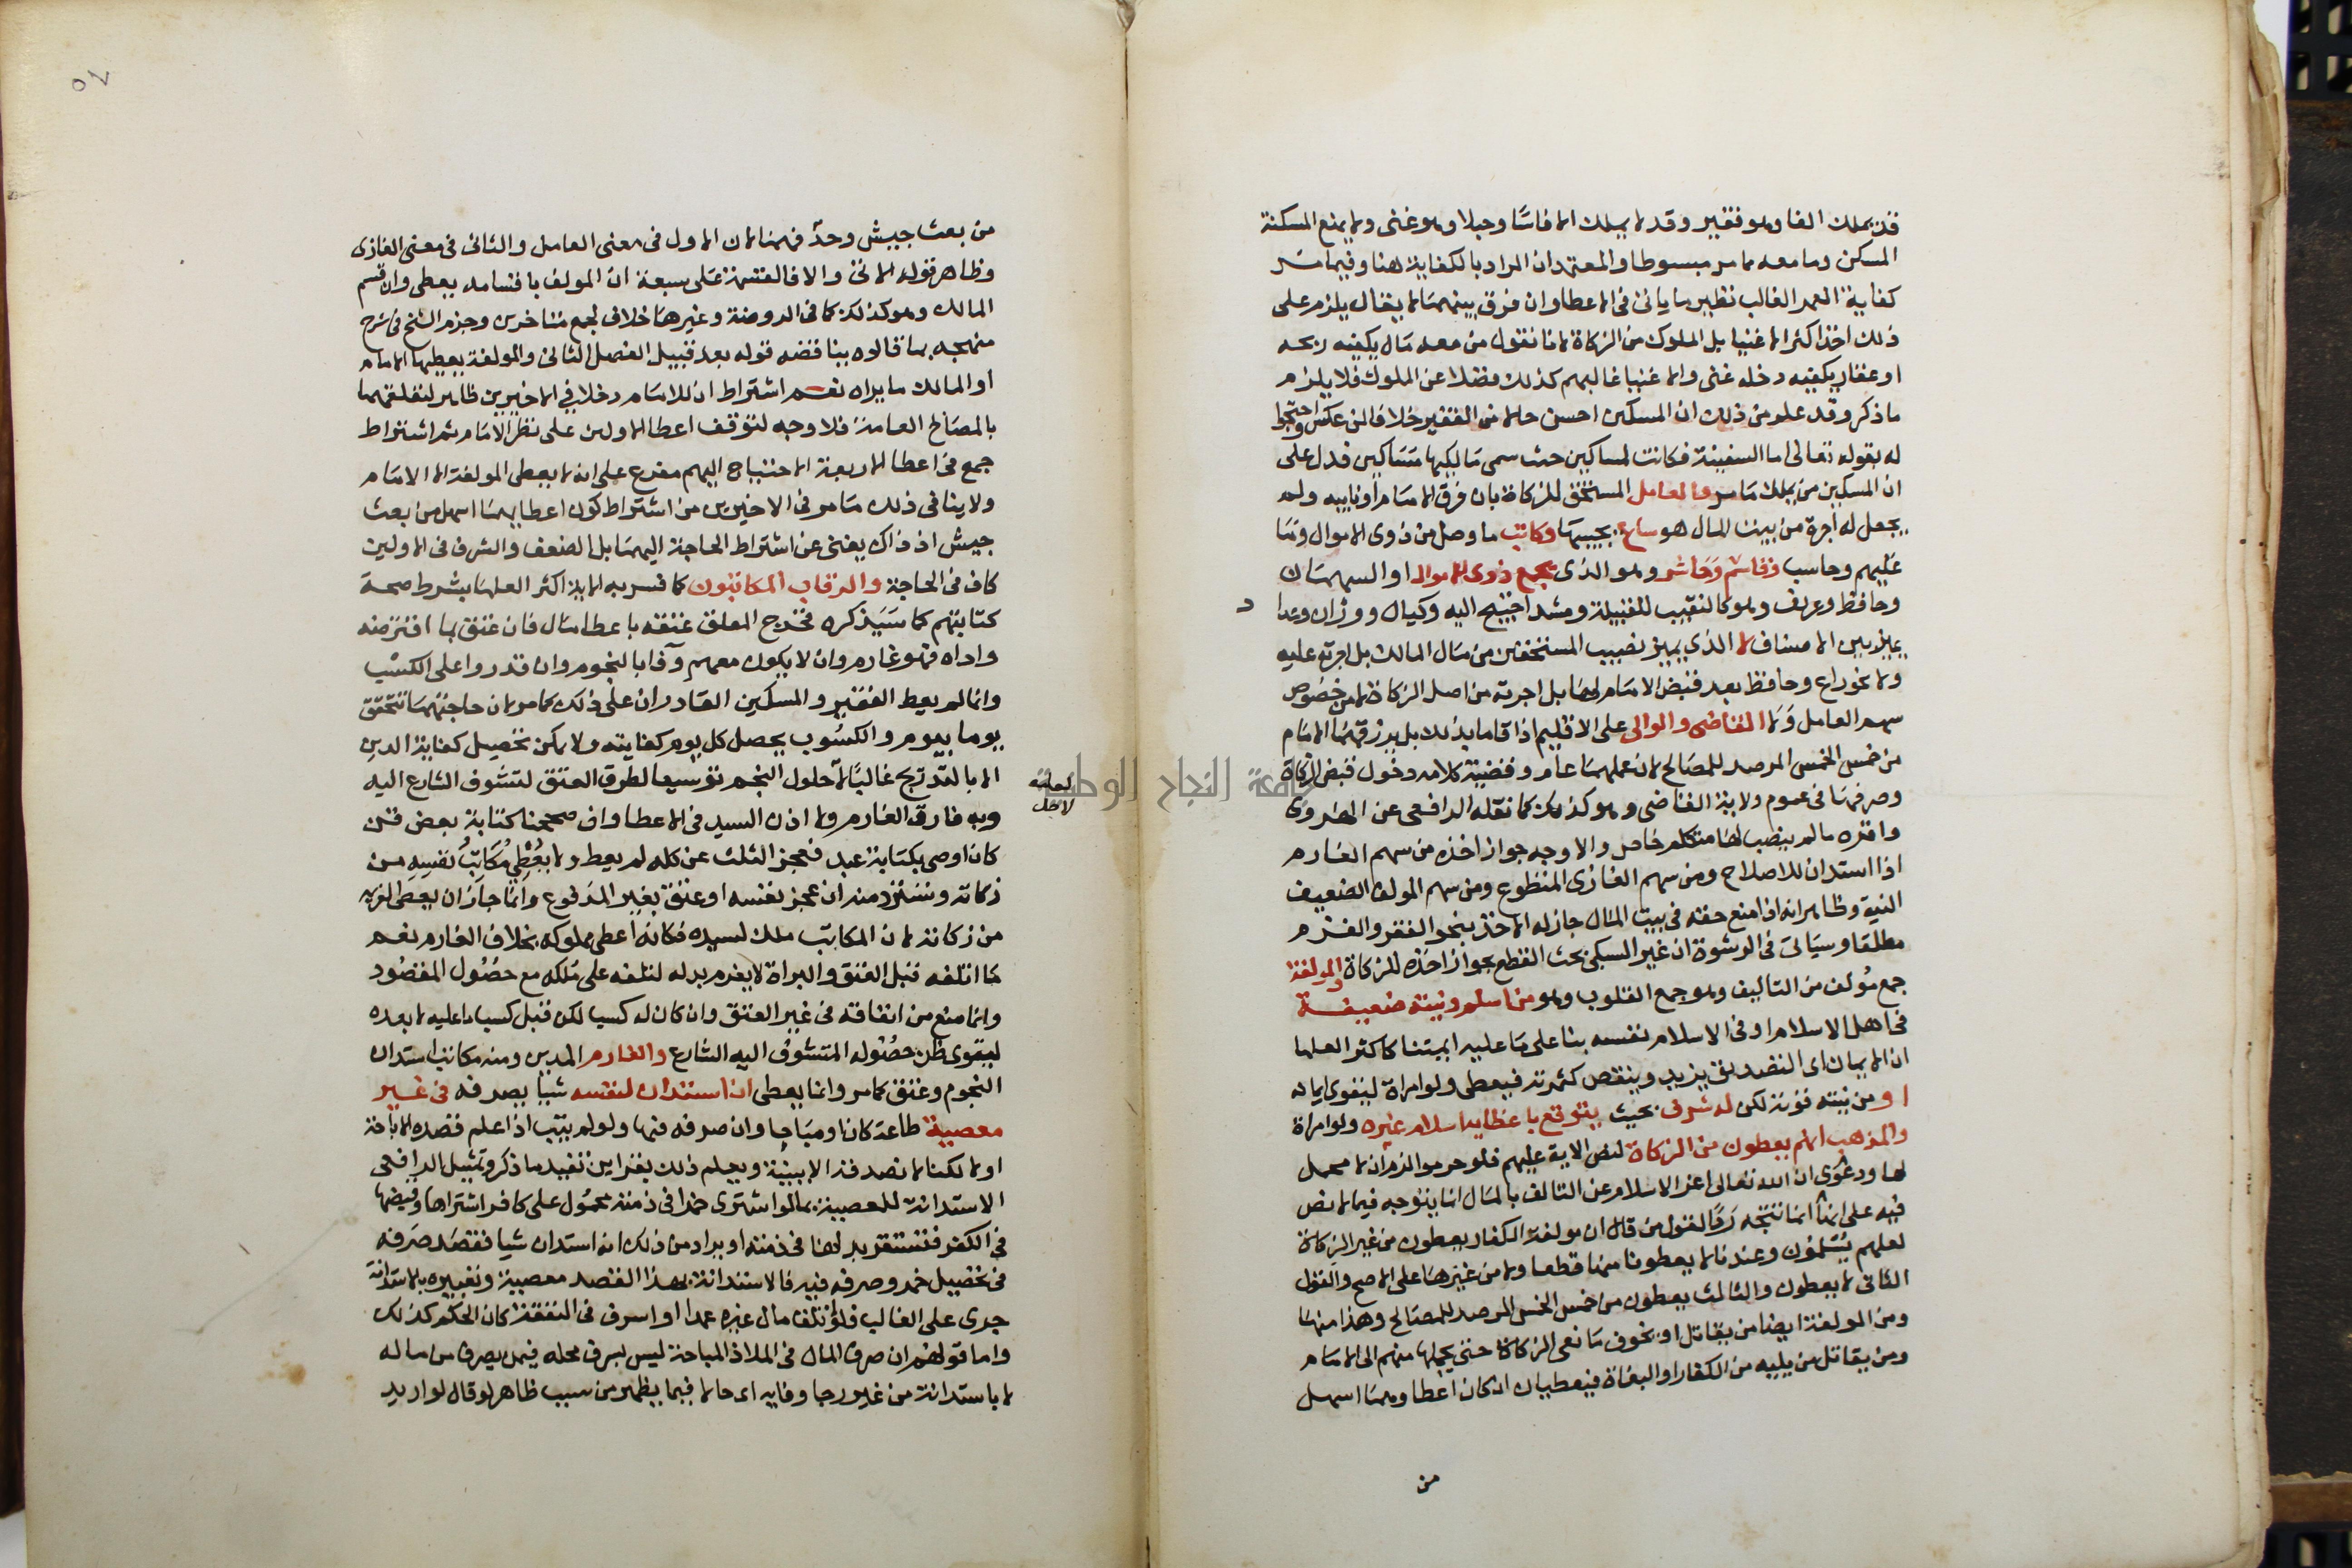 فقد يملك الفا وهو فقير وقد لا يملك الا فاسًا وحبلا وهو غنى ولا يمنع المسكنة
المسكن وما معه مما مر مبسوطا والمعتمد ان المراد بالكفاية هنا وفيما مر
كفاية العمر الغالب نظير ما ياتى فى الاعطا وان فرق بينهما لا يقال يلزم على
ذلك اخذ اكثر الاغنيا بل الملوك من الزكاة لانا نقول من معه مال يكفيه ربحه
او عقار يكفيه دخله غنى والاغنيا غالبهم كذلك فضلا عن الملوك فلا يلزم
ما ذكر وقد علم من ذلك ان المسكين احسن حالا من الفقير خلافا لمن عكس واحتجوا
له بقوله تعالى اما السفينة فكانت لمساكين حيث سمى مالكيها مساكين فدل على
ان المسكين من يملك ما مر والعامل المستحق للزكاة بان فرق الامام او نايبه ولم
يجعل له اجرة من بيت المال هو ساع يجبيها وكاتب ما وصل من ذوى الاموال وما
عليهم وحاسب وقاسم وحاشر وهو الذى يجمع ذوى الاموال او السهمان
وحافظ وعريف وهو كالنقيب للقبيلة ومشد احتيج اليه وكيال ووزان وعداد
يميز بين الاصناف لا الذى يميز نصيب المستحقين من مال المالك بل اجرته عليه
ولا نحو راع وحافظ بعد قبض الامام لها بل اجرته من اصل الزكاة لا من خصوص
سهم العامل ولا القاضى والوالى على الاقليم اذا قاما بذلك بل يرزقهما الامام
من خمس الخمس المرصد للمصالح لان عملهما عام وقضية كلامه دخول قبض الزكاة
وصرفها فى عموم ولاية القاضى وهو كذلك كما نقله الرافعى عن الهروى
واقره ما لم ينصب لها متكلم خاص والاوجه جواز اخذه من سهم الغارم
اذا استدان للاصلاح ومن سهم الغازى المتطوع ومن سهم المولف الضعيف
النية وظاهر انه اذا منع حقه فى بيت المال جاز له الاخذ بنحو الفقر والغرم
مطلقا وسياتى فى الرشوة ان غير السبكى بحث القطع بجواز اخذه للزكاة والمولفة
جمع مولف من التاليف وهو جمع القلوب وهو من اسلم ونيته ضعيفة
فى اهل الاسلام او فى الاسلام نفسه بنا على ما عليه ايمتنا كاكثر العلما
ان الايمان اى التصديق يزيد وينقص كثمرته فيعطى ولو امراة ليقوى ايمانه
او من نيته قوية لكن له شرف بحيث يتوقع باعطايه اسلام غيره ولو امراة
والمذهب انهم يعطون من الزكاة لنص الاية عليهم فلو حرموا لزم ان لا محمل
لها ودعوى ان الله تعالى اعز الاسلام عن التالف بالمال انما يتوجه فيما لا نص
فيه على انها انما تتجه ردا لقول من قال ان مولفة الكفار يعطون من غير الزكاة
لعلهم يسلمون وعندنا لا يعطون منها قطعا ولا من غيرها على الاصح والقول
الثانى لا يعطون والثالث يعطون من خمس الخمس المرصد للمصالح وهذا منها
ومن المولفة ايضا من يقاتل او يخوف مانعى الزكاة حتى يحملها منهم الى الامام
ومن يقاتل من يليه من الكفار او البغاة فيعطيان ان كان اعطاوهما اسهل
من
٥٧
من بعث جيش وحذفهما لان الاول فى معنى العامل والثانى فى معنى الغازى
وظاهر قوله الاتى والا فالقسمة على سبعة ان المولف باقسامه يعطى وان قسم
المالك وهو كذلك كما فى الروضة وغيرها خلافا لجمع متاخرين وجزم الشيخ فى شرح
منهجه بما قالاه يناقضه قوله بعد قبيل الفصل الثانى والمولفة يعطيها الامام
او المالك ما يراه نعم اشتراط ان للامام دخلا فى الاخيرين ظاهر لتعلقهما
بالمصالح العامة فلا وجه لتوقف اعطا الاولين على نظر الامام ثم اشتراط
جمع فى اعطا الاربعة الاحتياج اليهم مفرع على انه لا يعطى المولفة الا الامام
ولا ينافى ذلك ما مر فى الاخيرين من اشتراط كون اعطايهما اسهل من بعث
جيش اذ ذاك يغنى عن اشتراط الحاجة اليهما بل الضعف والشرف فى الاولين
كاف فى الحاجة والرقاب المكاتبون كما فسر به الاية اكثر العلما بشرط صحة
كتابتهم كما سيذكره فخرج المعلق عتقه باعطا مال فان عتق بما اقترضه
واداه فهو غارم وان لا يكون معهم وفا بالنجوم وان قدروا على الكسب
وانما لم يعط الفقير والمسكين القادران على ذلك كما مر لان حاجتهما تتحقق
يوما بيوم والكسوب يحصل كل يوم كفايته ولا يمكن تحصيل كفاية الدين
الا بالتدريج غالبا لا حلول النجم توسيعا لطرق العتق لتشوف الشارع اليه
وبه فارق الغارم ولا اذن السيد فى الاعطا وان صححنا كتابة بعض قن
كان اوصى بكتابة عبد فعجز الثلث عن كله لم يعط ولا يعطى مكاتب نفسه من
زكاته وتسترد منه ان عجز نفسه او عتق بغير المدفوع وانما جاز ان يعطى لغريمه
من زكاته لان المكاتب ملك لسيده فكانه اعطى مملوكه بخلاف الغارم نعم
ما اتلفه قبل العتق والبراة لا يغرم بدله لتلفه على ملكه مع حصول المقصود
وانما منع من انفاقه فى غير العتق وان كان له كسب لكن قبل كسب ما عليه لا بعده
ليقوى ظن حصوله المتشوف اليه الشارع والغارم المدين ومنه مكاتب استدان
النجوم وعتق كما مر وانما يعطى ان استدان لنفسه شيا يصرفه فى غير
معصية طاعة كان او مباحا وان صرفه فيها ولو لم يتب اذا علم قصده الاباحة
اولا لكنا لا نصدقه الا ببينة ويعلم ذلك بقراين تفيد ما ذكر وتمثيل الرافعى
الاستدانة للمعصية بما لو اشترى خمرا فى ذمته محمول على كافر اشتراها وقبضها
فى الكفر فتستقر بدلها فى ذمته او يراد من ذلك انه استدان شيا فقصد صرفه
فى تحصيل خمر وصرفه فيه فالاستدانة بهذا القصد معصية وتعبيره بالاستدانة
جرى على الغالب فلو اتلف مال غيره عمدا او اسرف فى النفقة كان الحكم كذلك
واما قولهم ان صرف المال فى الملاذ المباحة ليس بسرف محله فيمن يصرف من ماله
لا باستدانة من غير رجا وفايه اى حالا فيما يظهر من سبب ظاهر لو قال لو اريد
جامعة النجاح الوطنية